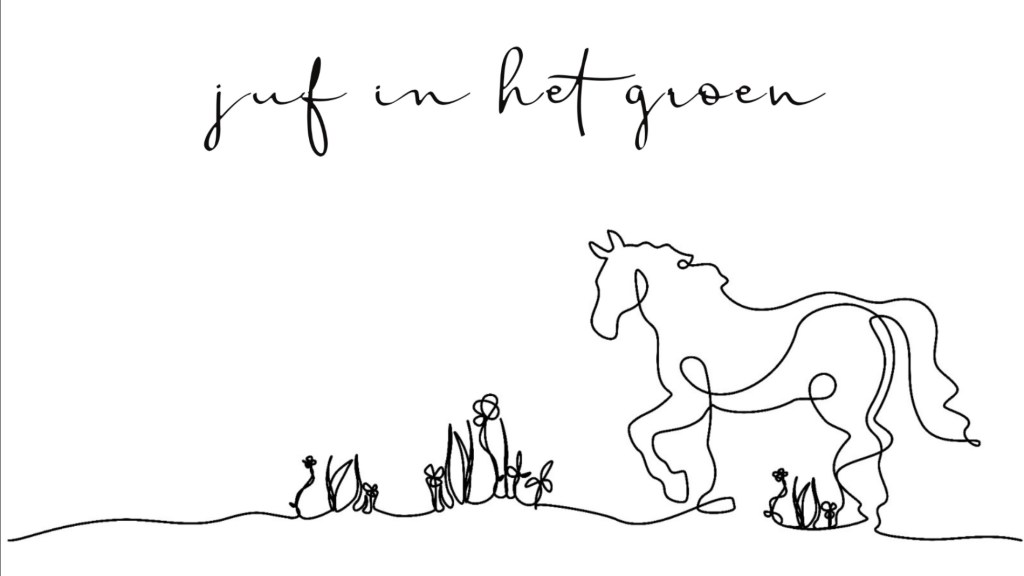 juf in het groen